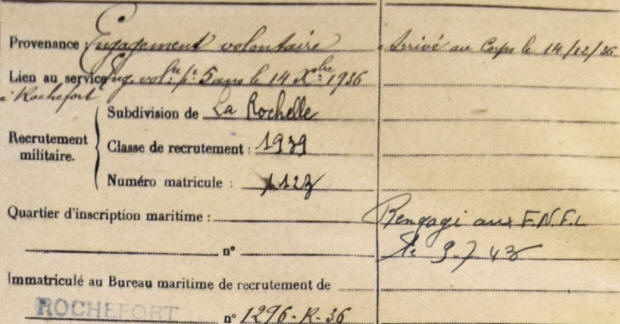 Provenance : Engagement volontaire
Arrivé au Corps le 14/12/36
Lien au service Eng. vol.re pr 5 ans le 14 Xbre 1936
à Rochefort
Recrutement militaire.
Subdivision de La Rochelle
Classe de recrutement : 1939
Numéro matricule : 1123
Quartier d'inscription maritime :
n°
Rengagé aux F.N.F.L
le 9.7.43
Immatriculé au Bureau maritime de recrutement de
ROCHEFORT n° 1296-R-36